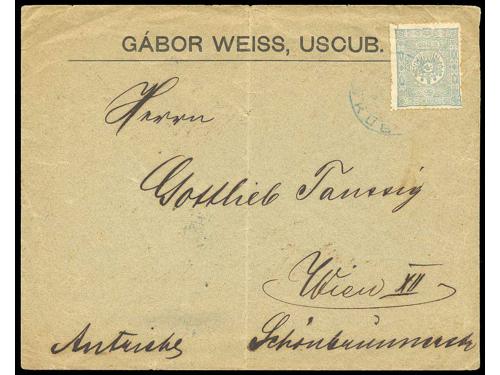 GÁBOR WEISS, USCUB.
KUB
Herrn
Gottlieb Taussig
Wien XII
Autriche Schönbrunnerstr